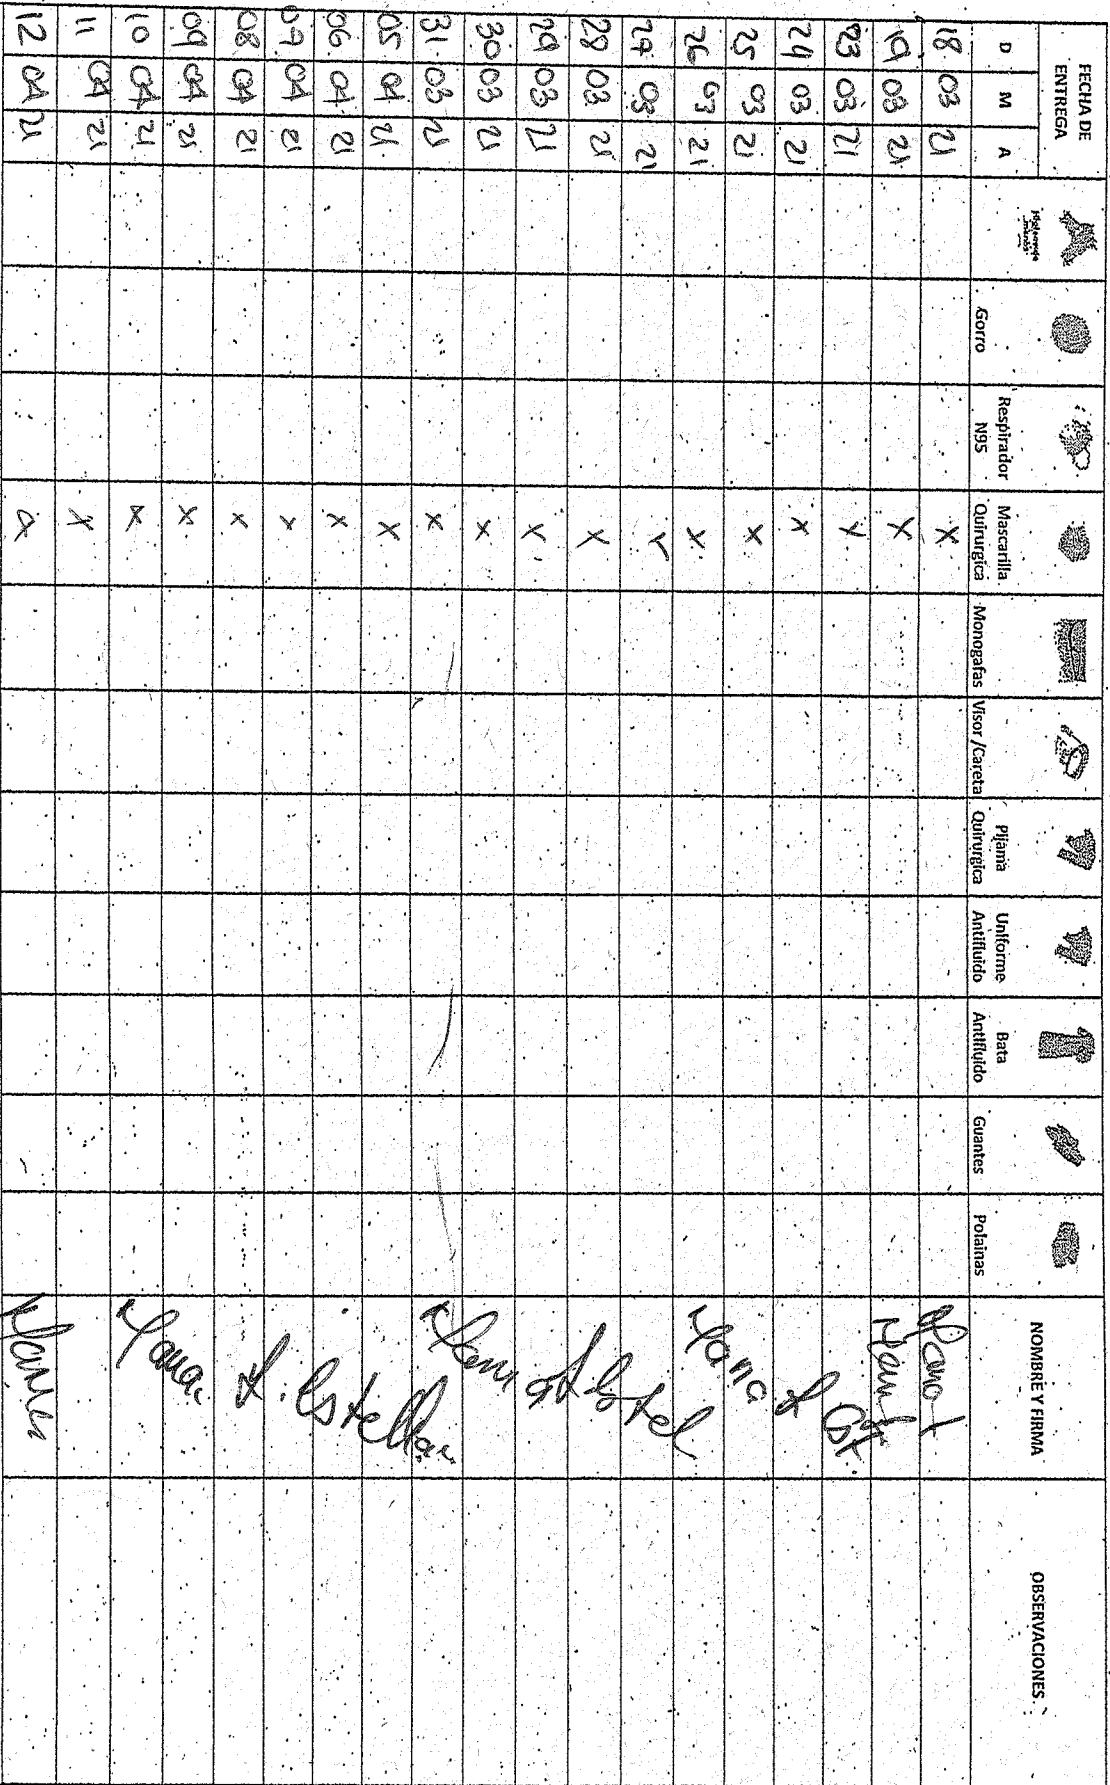 FECHA DE ENTREGA
D M A
Gorro
Respirador N95
Mascarilla Quirurgica
Monogafas
Visor /Careta
Pijama Quirurgica
Uniforme Antifluido
Bata Antifluido
Guantes
Polainas
NOMBRE Y FIRMA
OBSERVACIONES
18 03 21 X
19 03 21 X
23 03 21 X
24 03 21 X
25 03 21 X
26 03 21 X
27 03 21 X
28 03 21 X
29 03 21 X
30 03 21 X
31 03 21 X
05 04 21 X
06 04 21 X
07 04 21 X
08 04 21 X L. Estella
09 04 21 X
10 04 21 X
11 04 21 X
12 04 21 X